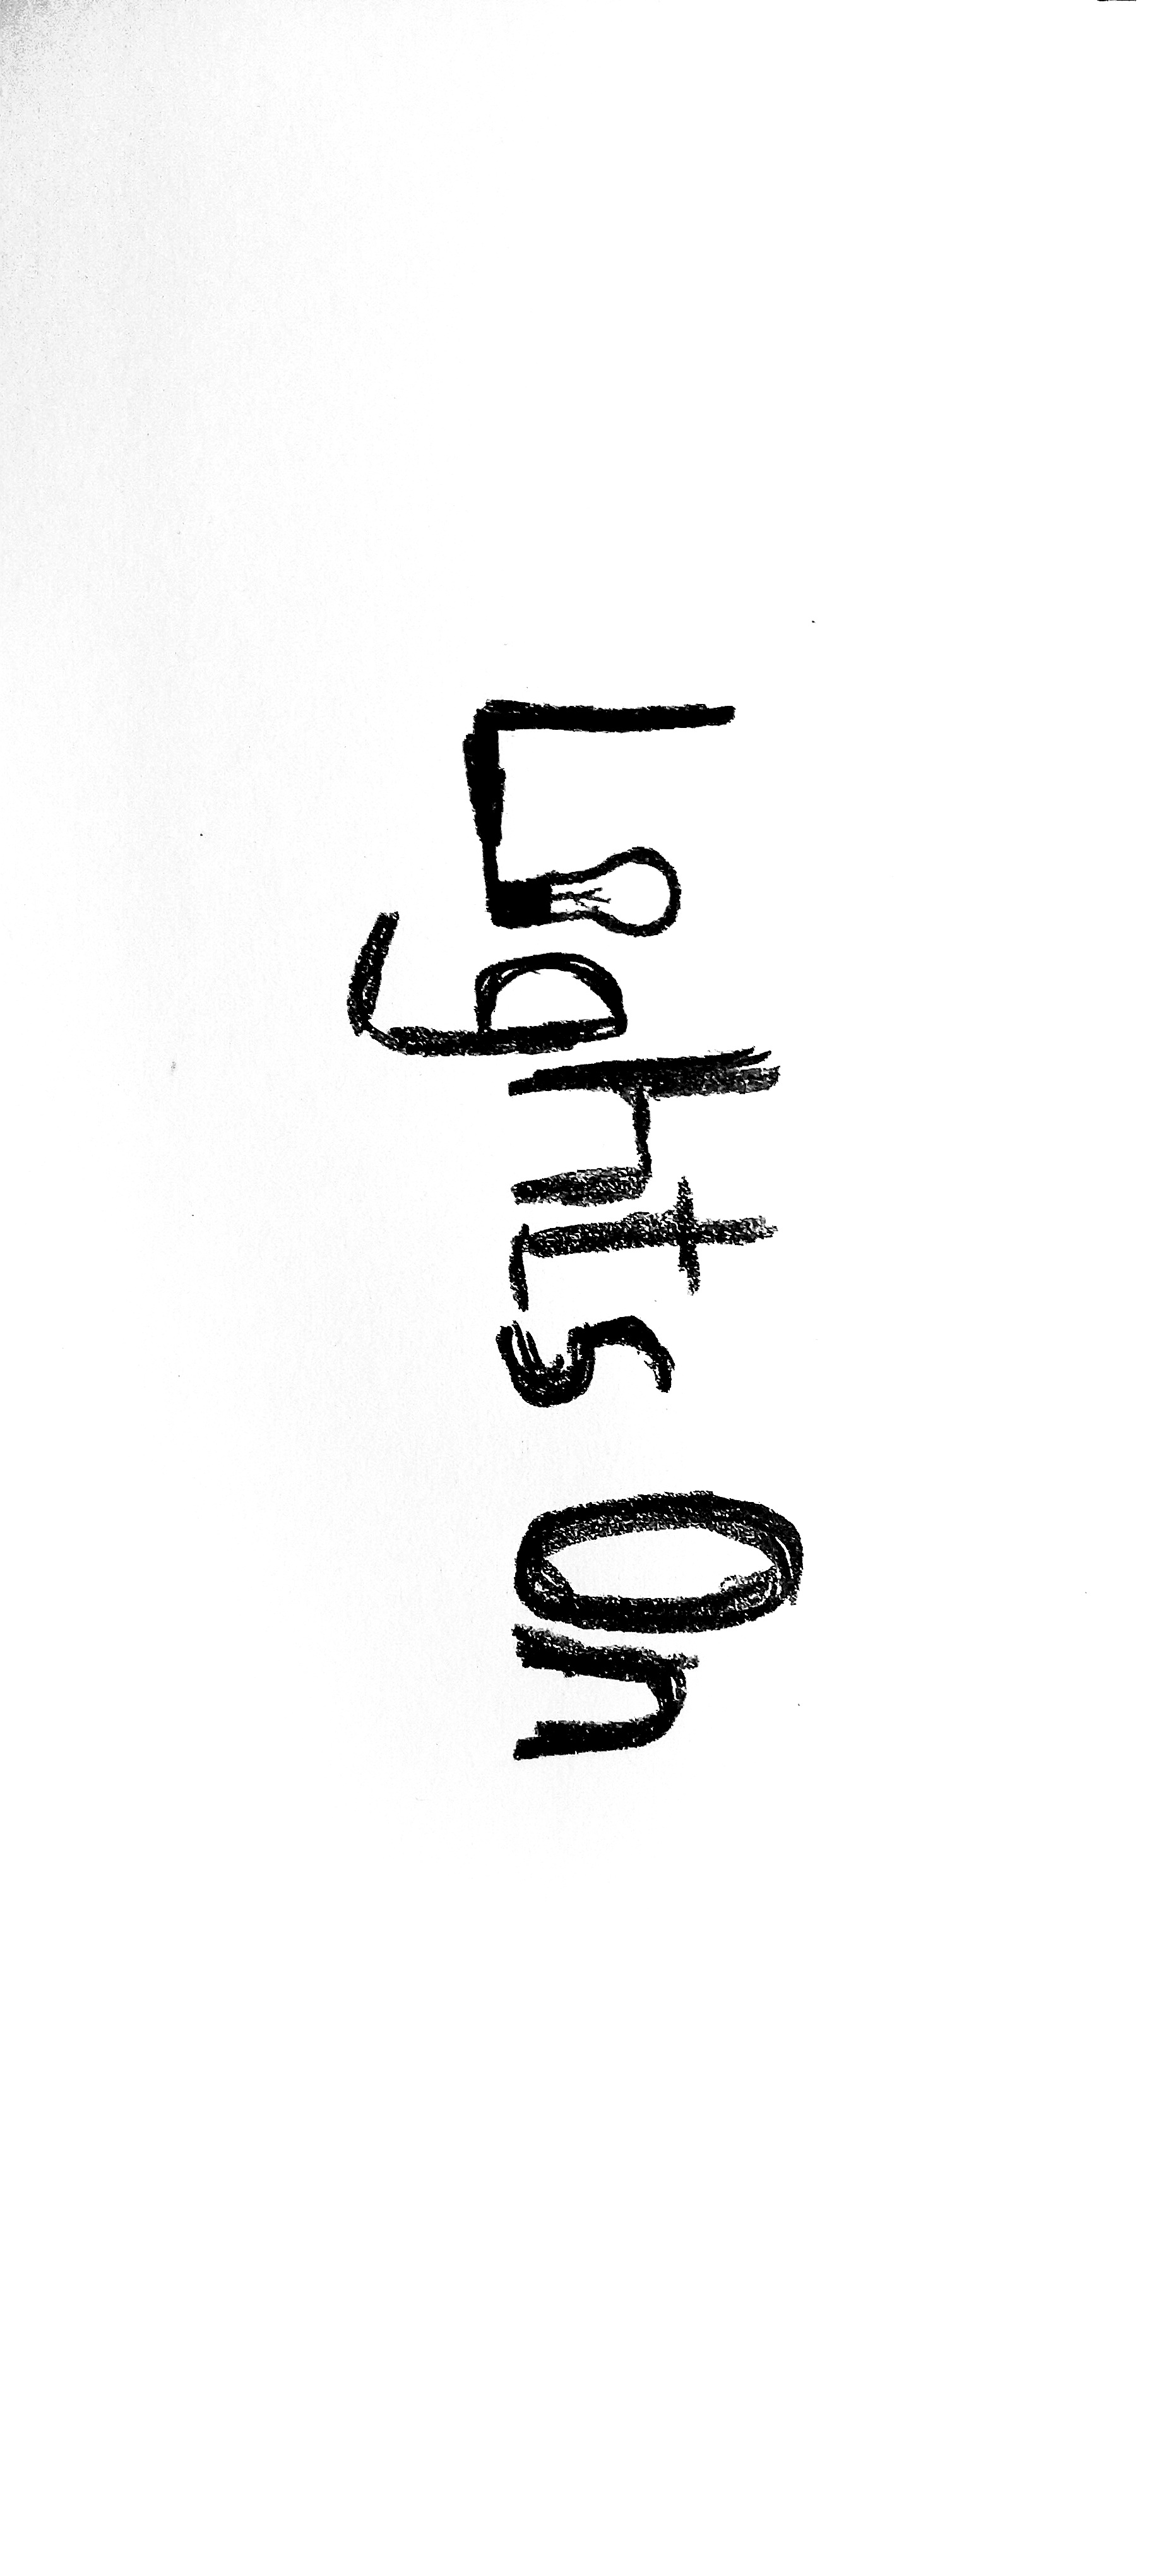 Lights On